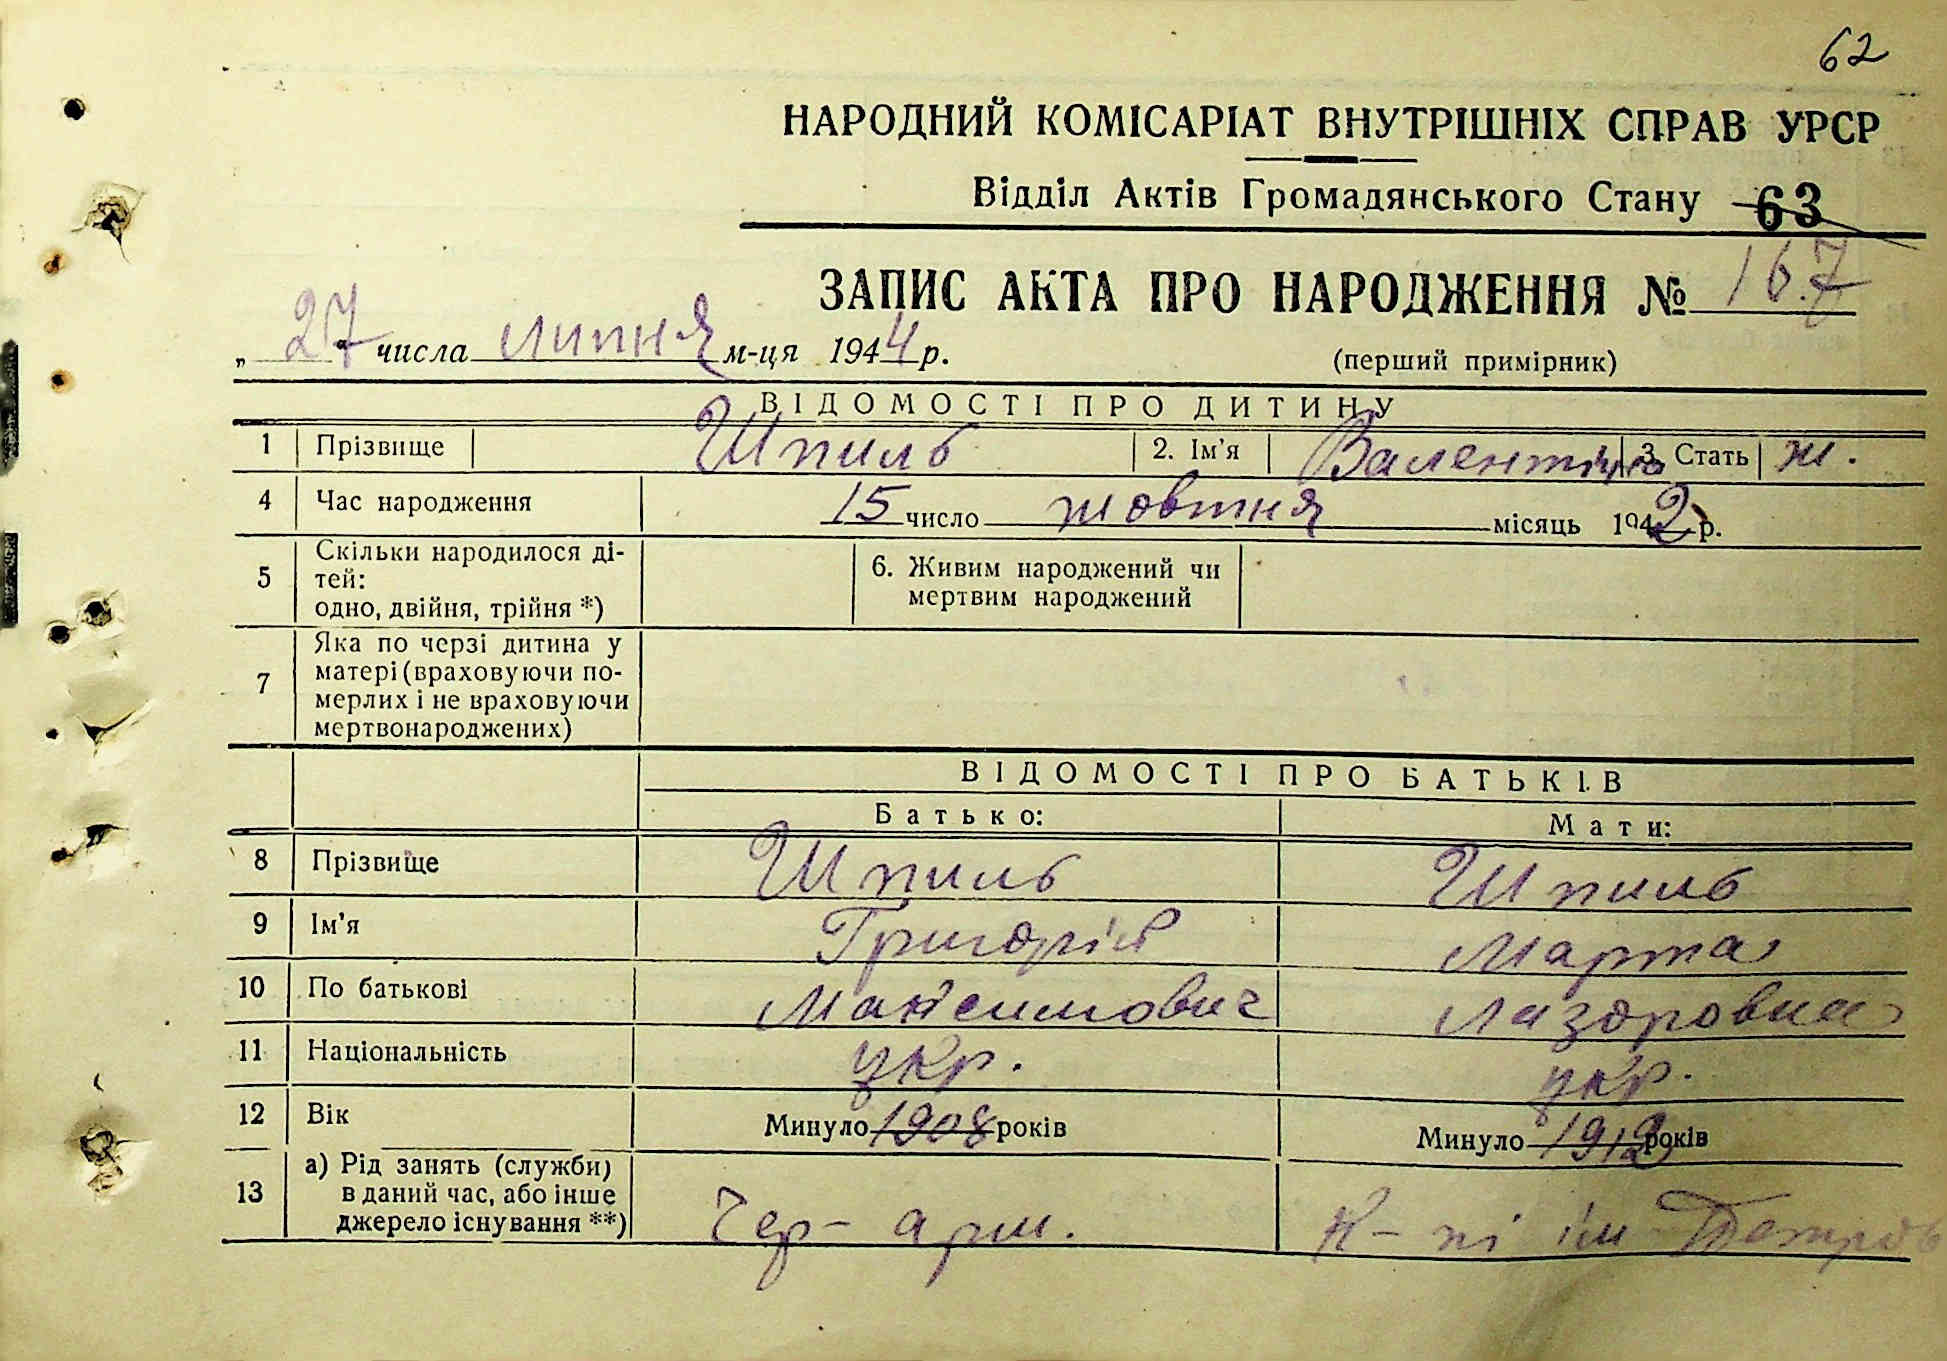 62
НАРОДНИЙ КОМІСАРІАТ ВНУТРІШНІХ СПРАВ УРСР
Відділ Актів Громадянського Стану 63
ЗАПИС АКТА ПРО НАРОДЖЕННЯ № 167
„ 27 " числа липня м-ця 1944 р.
(перший примірник)
ВІДОМОСТІ ПРО ДИТИНУ
1 Прізвище Шпиль 2. Ім'я Валентина 3. Стать ж.
4 Час народження 15 число жовтня місяць 1942 р.
5 Скільки народилося ді-
тей:
одно, двійня, трійня *)
6. Живим народжений чи
мертвим народжений
7 Яка по черзі дитина у
матері (враховуючи по-
мерлих і не враховуючи
мертвонароджених)
ВІДОМОСТІ ПРО БАТЬКІВ
Батько: Мати:
8 Прізвище Шпиль Шпиль
9 Ім'я Григорій Марта
10 По батькові Максимович
11 Національність укр. укр.
12 Вік Минуло 1908 років Минуло 1912 років
13 а) Рід занять (служби)
в даний час, або інше
джерело існування **)
Чер- арм. К- пі ім